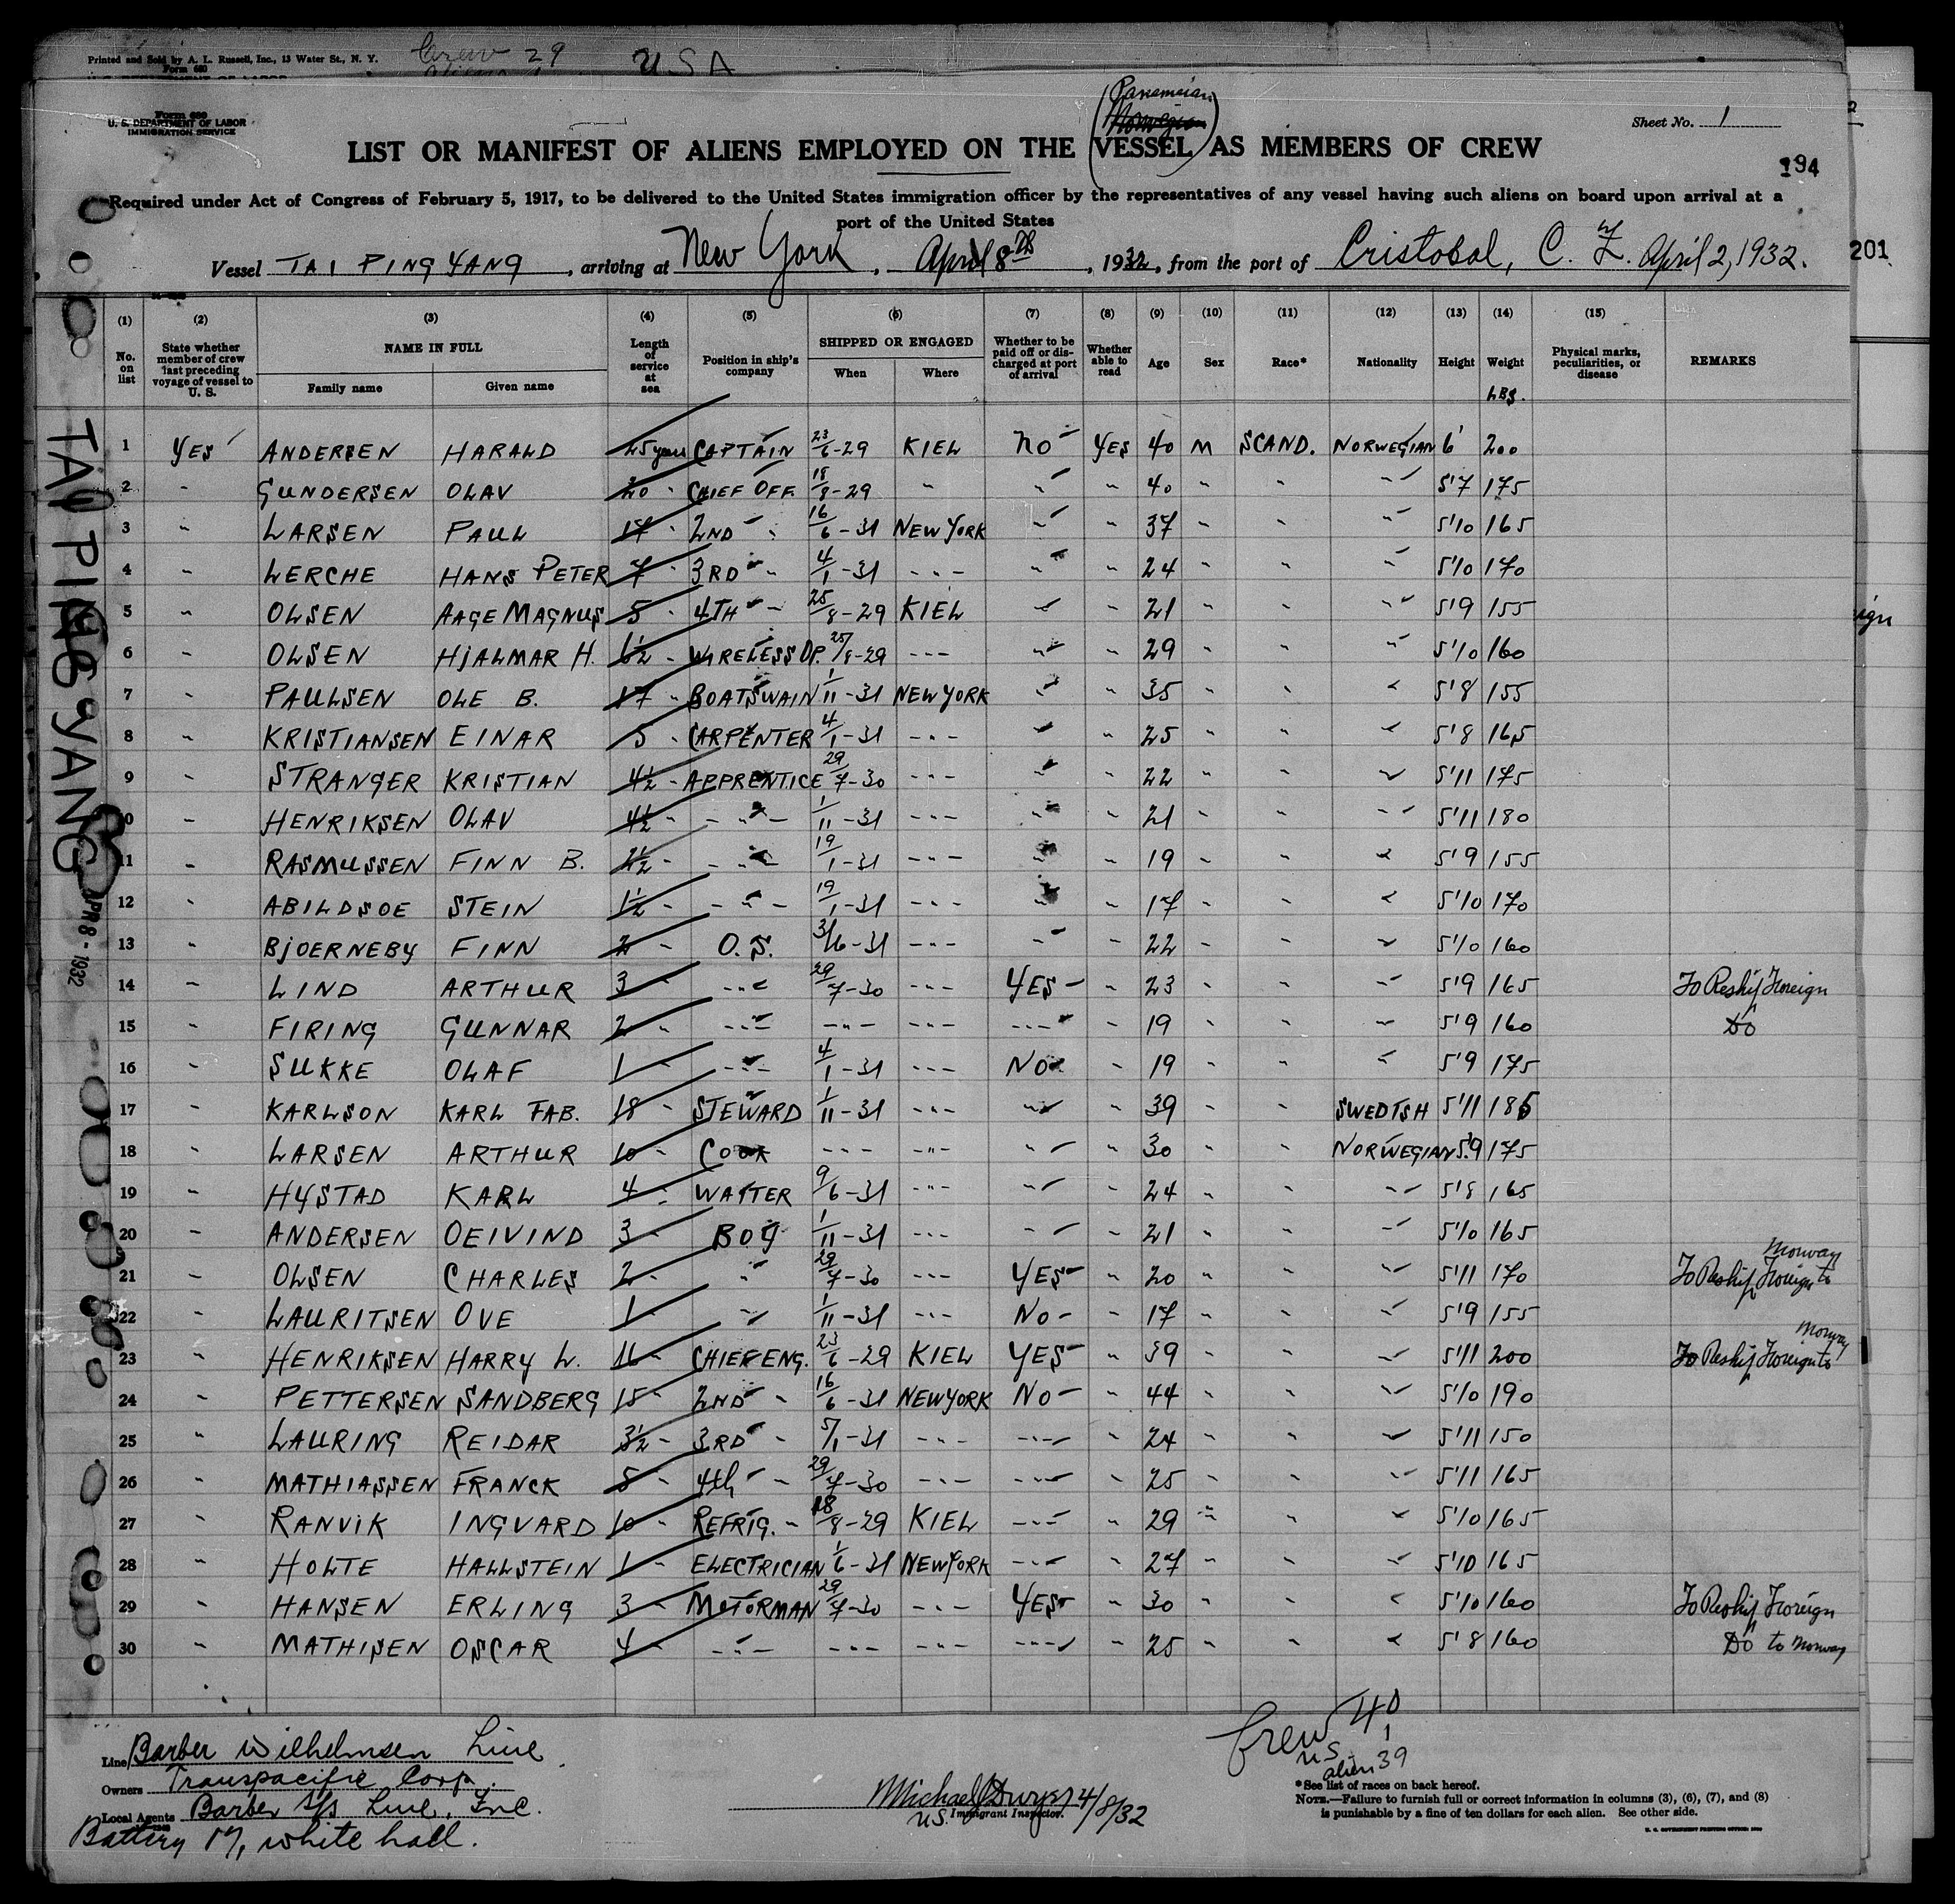 Printed and Sold by A. L. Russell, Inc., 13 Water St., N. Y.
Form 680
Crew 29
USA
Form 680
U. S. DEPARTMENT OF LABOR
IMMIGRATION SERVICE
Panamaian
Norwegian
Sheet No. 1
LIST OR MANIFEST OF ALIENS EMPLOYED ON THE VESSEL AS MEMBERS OF CREW
194
Required under Act of Congress of February 5, 1917, to be delivered to the United States immigration officer by the representatives of any vessel having such aliens on board upon arrival at a
port of the United States
Vessel TAI PING YANG, arriving at New York, April 8th, 1932, from the port of Cristobal, C. Z. April 2, 1932.
201
(1) No. on list (2) State whether member of crew last preceding voyage of vessel to U. S. (3) NAME IN FULL Family name Given name (4) Length of service at sea (5) Position in ship's company (6) SHIPPED OR ENGAGED When Where (7) Whether to be paid off or discharged at port of arrival (8) Whether able to read (9) Age (10) Sex (11) Race* (12) Nationality (13) Height (14) Weight LBS. (15) Physical marks, peculiarities, or disease REMARKS
1 YES ANDERSEN HARALD 25 years CAPTAIN 23/6-29 KIEL NO YES 40 M SCAND. NORWEGIAN 6' 200
2 " GUNDERSEN OLAV 20 " CHIEF OFF. 18/8-29 " " " 40 " " " 5'7 175
3 " LARSEN PAUL 17 " 2ND " 16/6-31 NEW YORK " " 37 " " " 5'10 165
4 " LERCHE HANS PETER 7 " 3RD " 4/1-31 -"- " " 24 " " " 5'10 170
5 " OLSEN AAGE MAGNUS 5 " 4TH " 25/8-29 KIEL " " 21 " " " 5'9 155
6 " OLSEN HJALMAR H. 6½ " WIRELESS OP. 25/8-29 -"- " " 29 " " " 5'10 160
7 " PAULSEN OLE B. 17 " BOATSWAIN 1/11-31 NEW YORK " " 35 " " " 5'8 155
8 " KRISTIANSEN EINAR 5 " CARPENTER 4/1-31 -"- " " 25 " " " 5'8 165
9 " STRANGER KRISTIAN 4½ " APPRENTICE 29/7-30 -"- " " 22 " " " 5'11 175
10 " HENRIKSEN OLAV 4½ " -"- 1/11-31 -"- " " 21 " " " 5'11 180
11 " RASMUSSEN FINN B. 2½ " -"- 19/1-31 -"- " " 19 " " " 5'9 155
12 " ABILDSOE STEIN 1½ " -"- 19/1-31 -"- " " 17 " " " 5'10 170
13 " BJOERNEBY FINN 2 " O.S. 3/6-31 -"- " " 22 " " " 5'10 160
14 " LIND ARTHUR 3 " -"- 29/7-30 -"- YES " 23 " " " 5'9 165 To Reship Foreign
15 " FIRING GUNNAR 2 " -"- -"- -"- -"- " 19 " " " 5'9 160 Do
16 " SUKKE OLAF 1 " -"- 4/1-31 -"- NO " 19 " " " 5'9 175
17 " KARLSON KARL FAB. 18 " STEWARD 1/11-31 -"- " " 39 " " SWEDISH 5'11 185
18 " LARSEN ARTHUR 10 " COOK -"- -"- " " 30 " " NORWEGIAN 5'9 175
19 " HYSTAD KARL 4 " WAITER 9/6-31 -"- " " 24 " " " 5'8 165
20 " ANDERSEN OEIVIND 3 " BOY 1/11-31 -"- " " 21 " " " 5'10 165
21 " OLSEN CHARLES 2 " " 29/7-30 -"- YES " 20 " " " 5'11 170 To Reship Foreign to Norway
22 " LAURITSEN OVE 1 " " 1/11-31 -"- NO " 17 " " " 5'9 155
23 " HENRIKSEN HARRY L. 16 " CHIEF ENG. 23/6-29 KIEL YES " 39 " " " 5'11 200 To Reship Foreign to Norway
24 " PETTERSEN SANDBERG 15 " 2ND " 16/6-31 NEW YORK NO " 44 " " " 5'10 190
25 " LAURING REIDAR 3½ " 3RD " 5/1-31 -"- -"- " 24 " " " 5'11 150
26 " MATHIASSEN FRANCK 8 " 4th " 29/7-30 -"- -"- " 25 " " " 5'11 165
27 " RANVIK INGVARD 10 " REFRIG. " 18/8-29 KIEL -"- " 29 " " " 5'10 165
28 " HOLTE HALLSTEIN 1 " ELECTRICIAN 1/6-31 NEW YORK -"- " 27 " " " 5'10 165
29 " HANSEN ERLING 3 " MOTORMAN 29/7-30 -"- YES " 30 " " " 5'10 160 To Reship Foreign
30 " MATHISEN OSCAR 4 " -"- -"- -"- -"- " 25 " " " 5'8 160 Do to Norway
TAI PING YANG
APR 8 - 1932
Line Barber Wilhelmsen Line
Owners Transpacific Corp.
Local Agents Barber S/S Line, Inc.
Battery 17, white hall.
Michael Dwyer 4/8/32
U.S. Immigrant Inspector.
Crew 40
U.S. 1
alien 39
*See list of races on back hereof.
NOTE.—Failure to furnish full or correct information in columns (3), (6), (7), and (8)
is punishable by a fine of ten dollars for each alien. See other side.